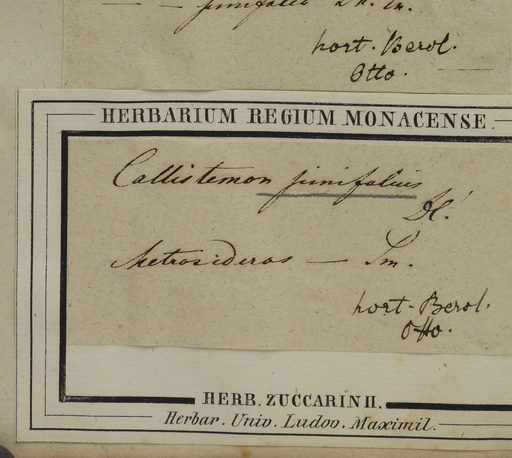 — — pinifolia
hort. Berol.
Otto.
HERBARIUM REGIUM MONACENSE.
Callistemon pinifolius
DC.
Metrosideros — Sm.
hort. Berol.
Otto.
HERB. ZUCCARINII.
Herbar. Univ. Ludov. Maximil.